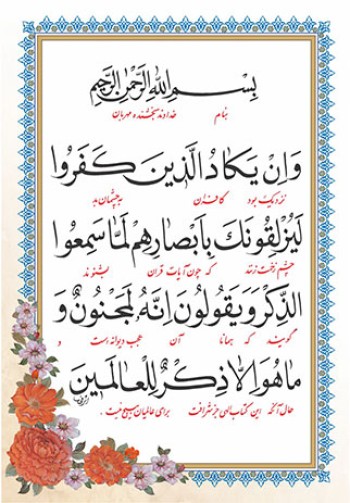 بِسْمِ اللهِ الرَّحْمٰنِ الرَّحِیمِ
بنام خداوند بخشنده مهربان
وَاِنْ یَکادُ الَّذینَ کَفَرُوا
نزدیک بود کافران به چشمان بد
لَیُزْلِقُونَکَ بِاَبْصارِهِمْ لَمّا سَمِعُوا
چشم زخمت زنند که چون آیات قرآن بشنوند
الذِّکْرَ وَ یَقُولُونَ اِنَّهُ لَمَجْنُونٌ وَ
گویند که همانا آن عجب دیوانه است و
ما هُوَ اِلّا ذِکْرٌ لِلْعالَمینَ
حال آنکه این کتاب الهی جز شرافت برای عالمیان هیچ نیست.